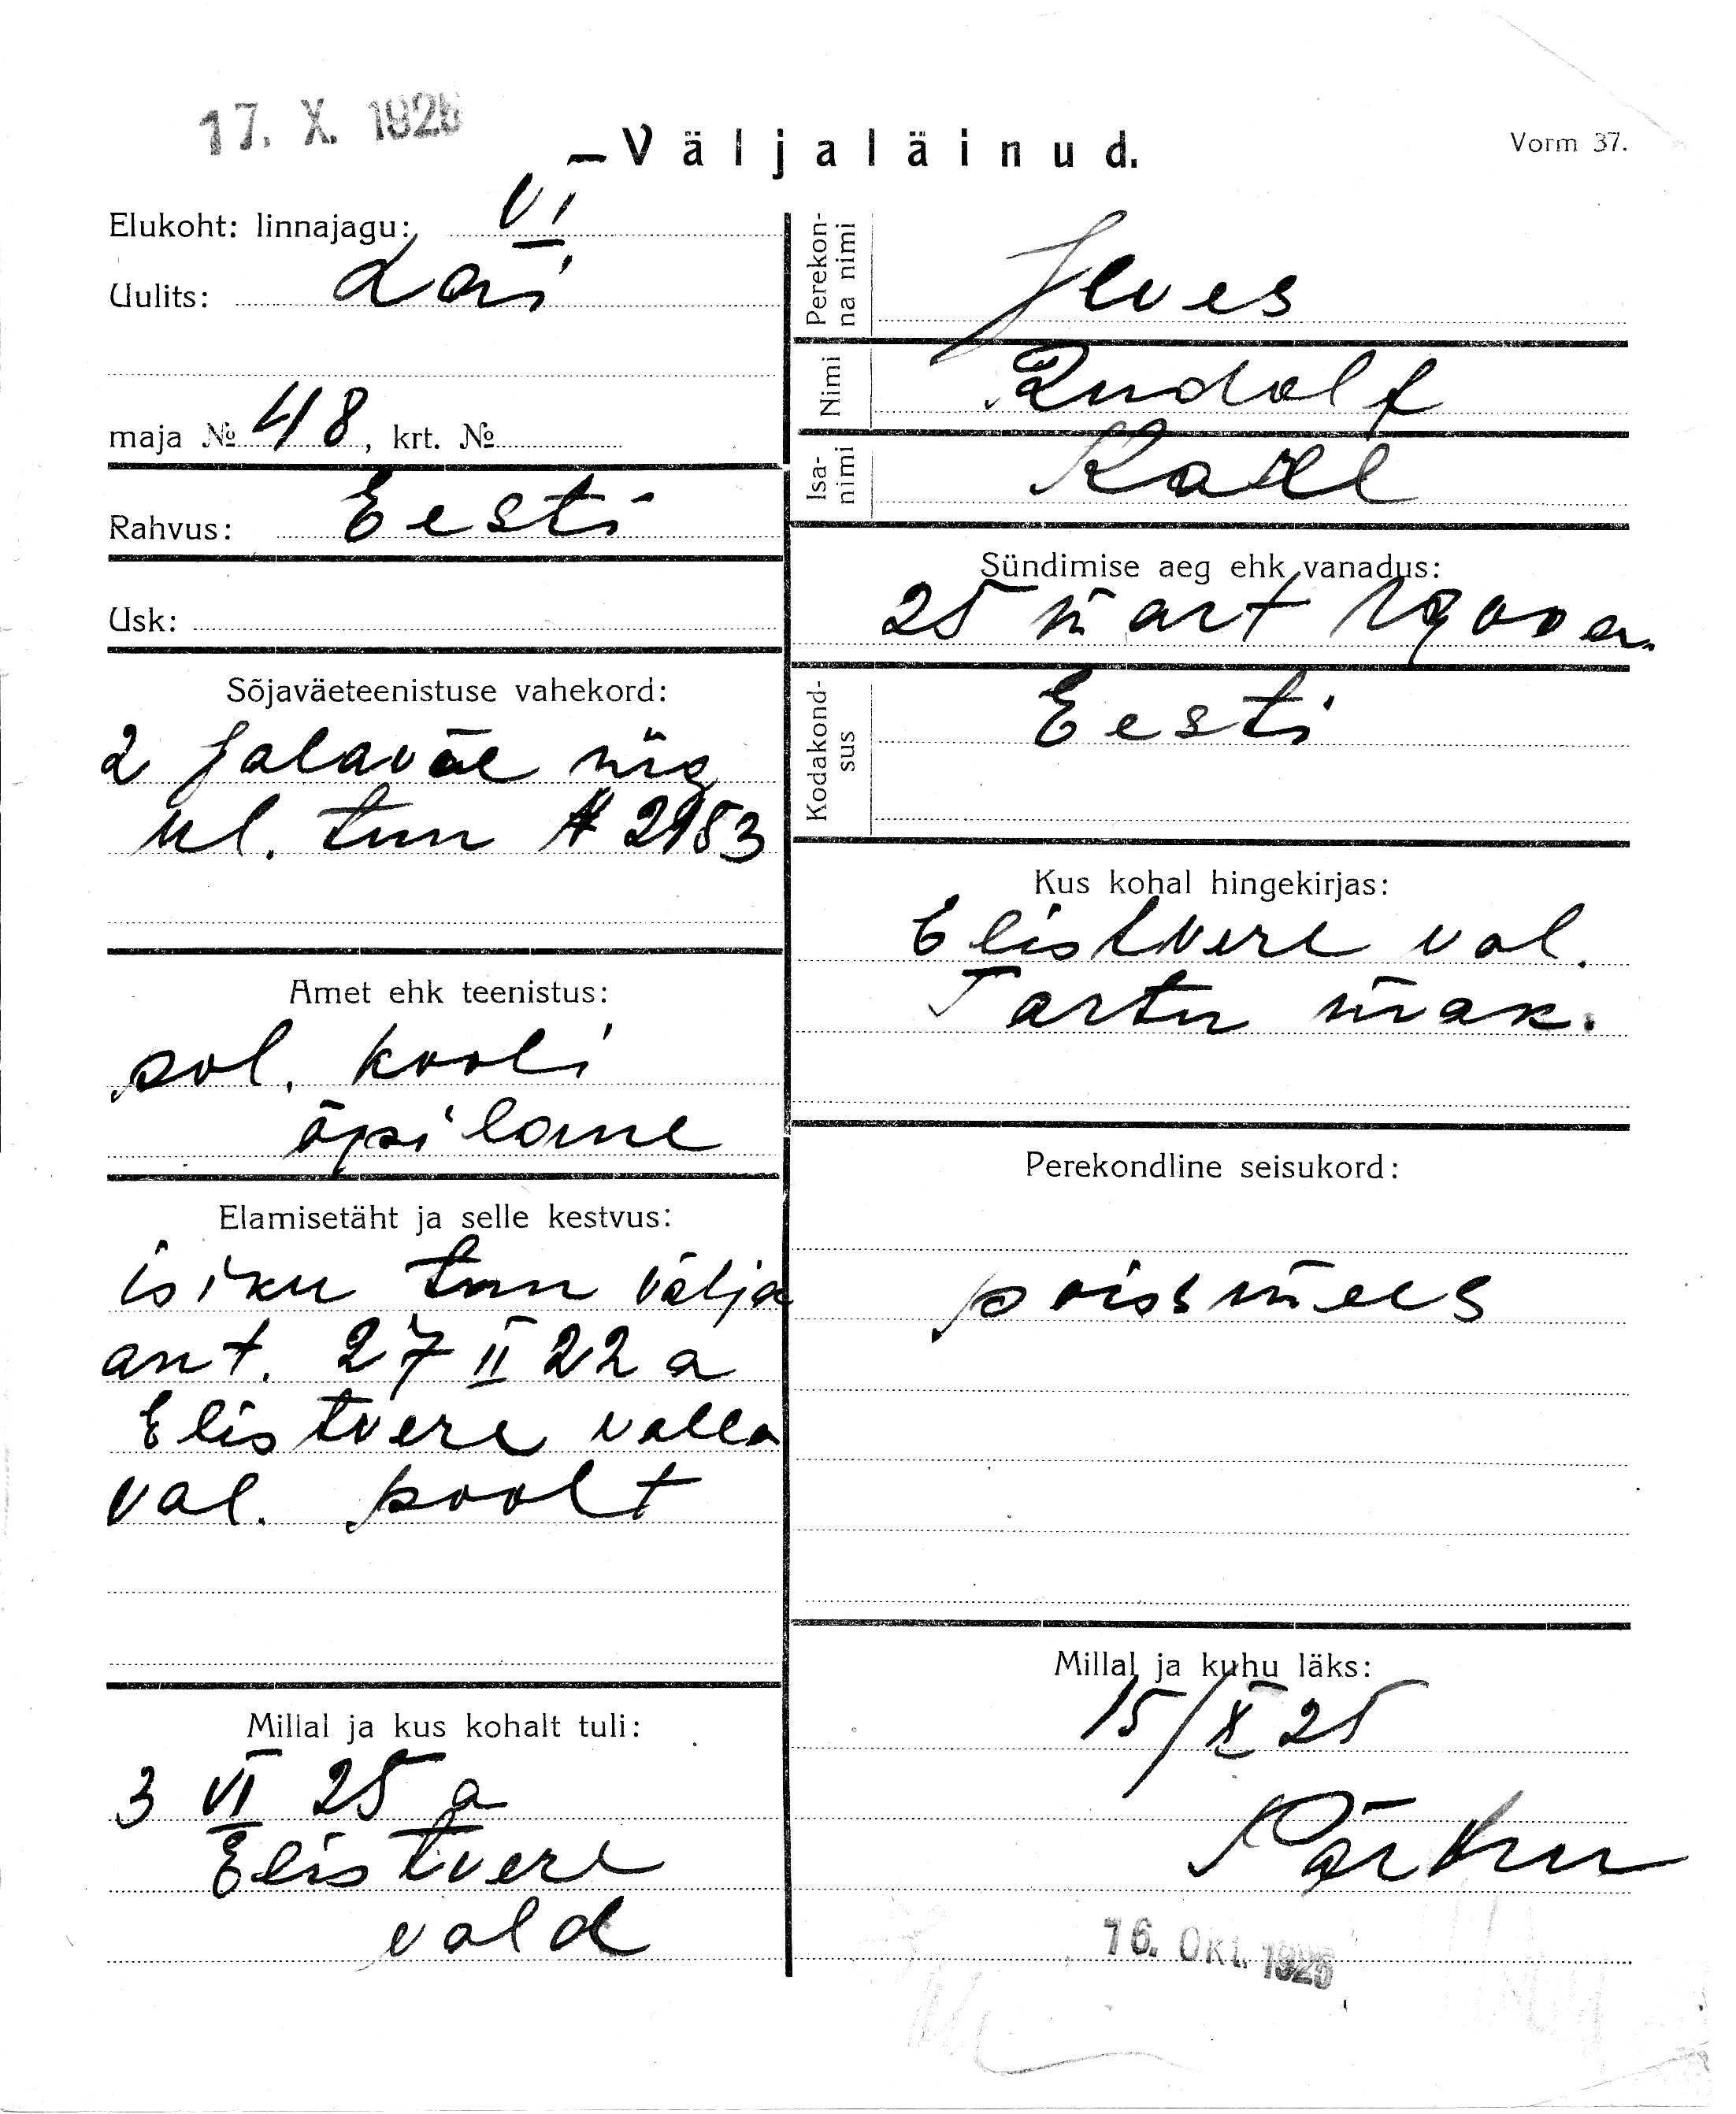 17. X. 1925
Väljaläinud.
Vorm 37.
Elukoht: linnajagu: VI
Uulits: Lai
maja № 48, krt. №
Rahvus: Eesti
Usk:
Sõjaväeteenistuse vahekord:
2 Jalaväe rüg
ül. tun № 2153
Amet ehk teenistus:
pol. kooli
õpilane
Elamisetäht ja selle kestvus:
isiku tun välja
ant. 27 II 22 a
Elistvere valla
val. poolt
Millal ja kus kohalt tuli:
3 VI 25 a
Elistvere
vald
Perekonna nimi
Ilves
Nimi
Rudolf
Isanimi
Karl
Sündimise aeg ehk vanadus:
25 märt 1900 a.
Kodakondsus
Eesti
Kus kohal hingekirjas:
Elistvere val.
Tartu mak.
Perekondline seisukord:
poissmees
Millal ja kuhu läks:
15/X 25
Pärnu
16. Okt. 1925